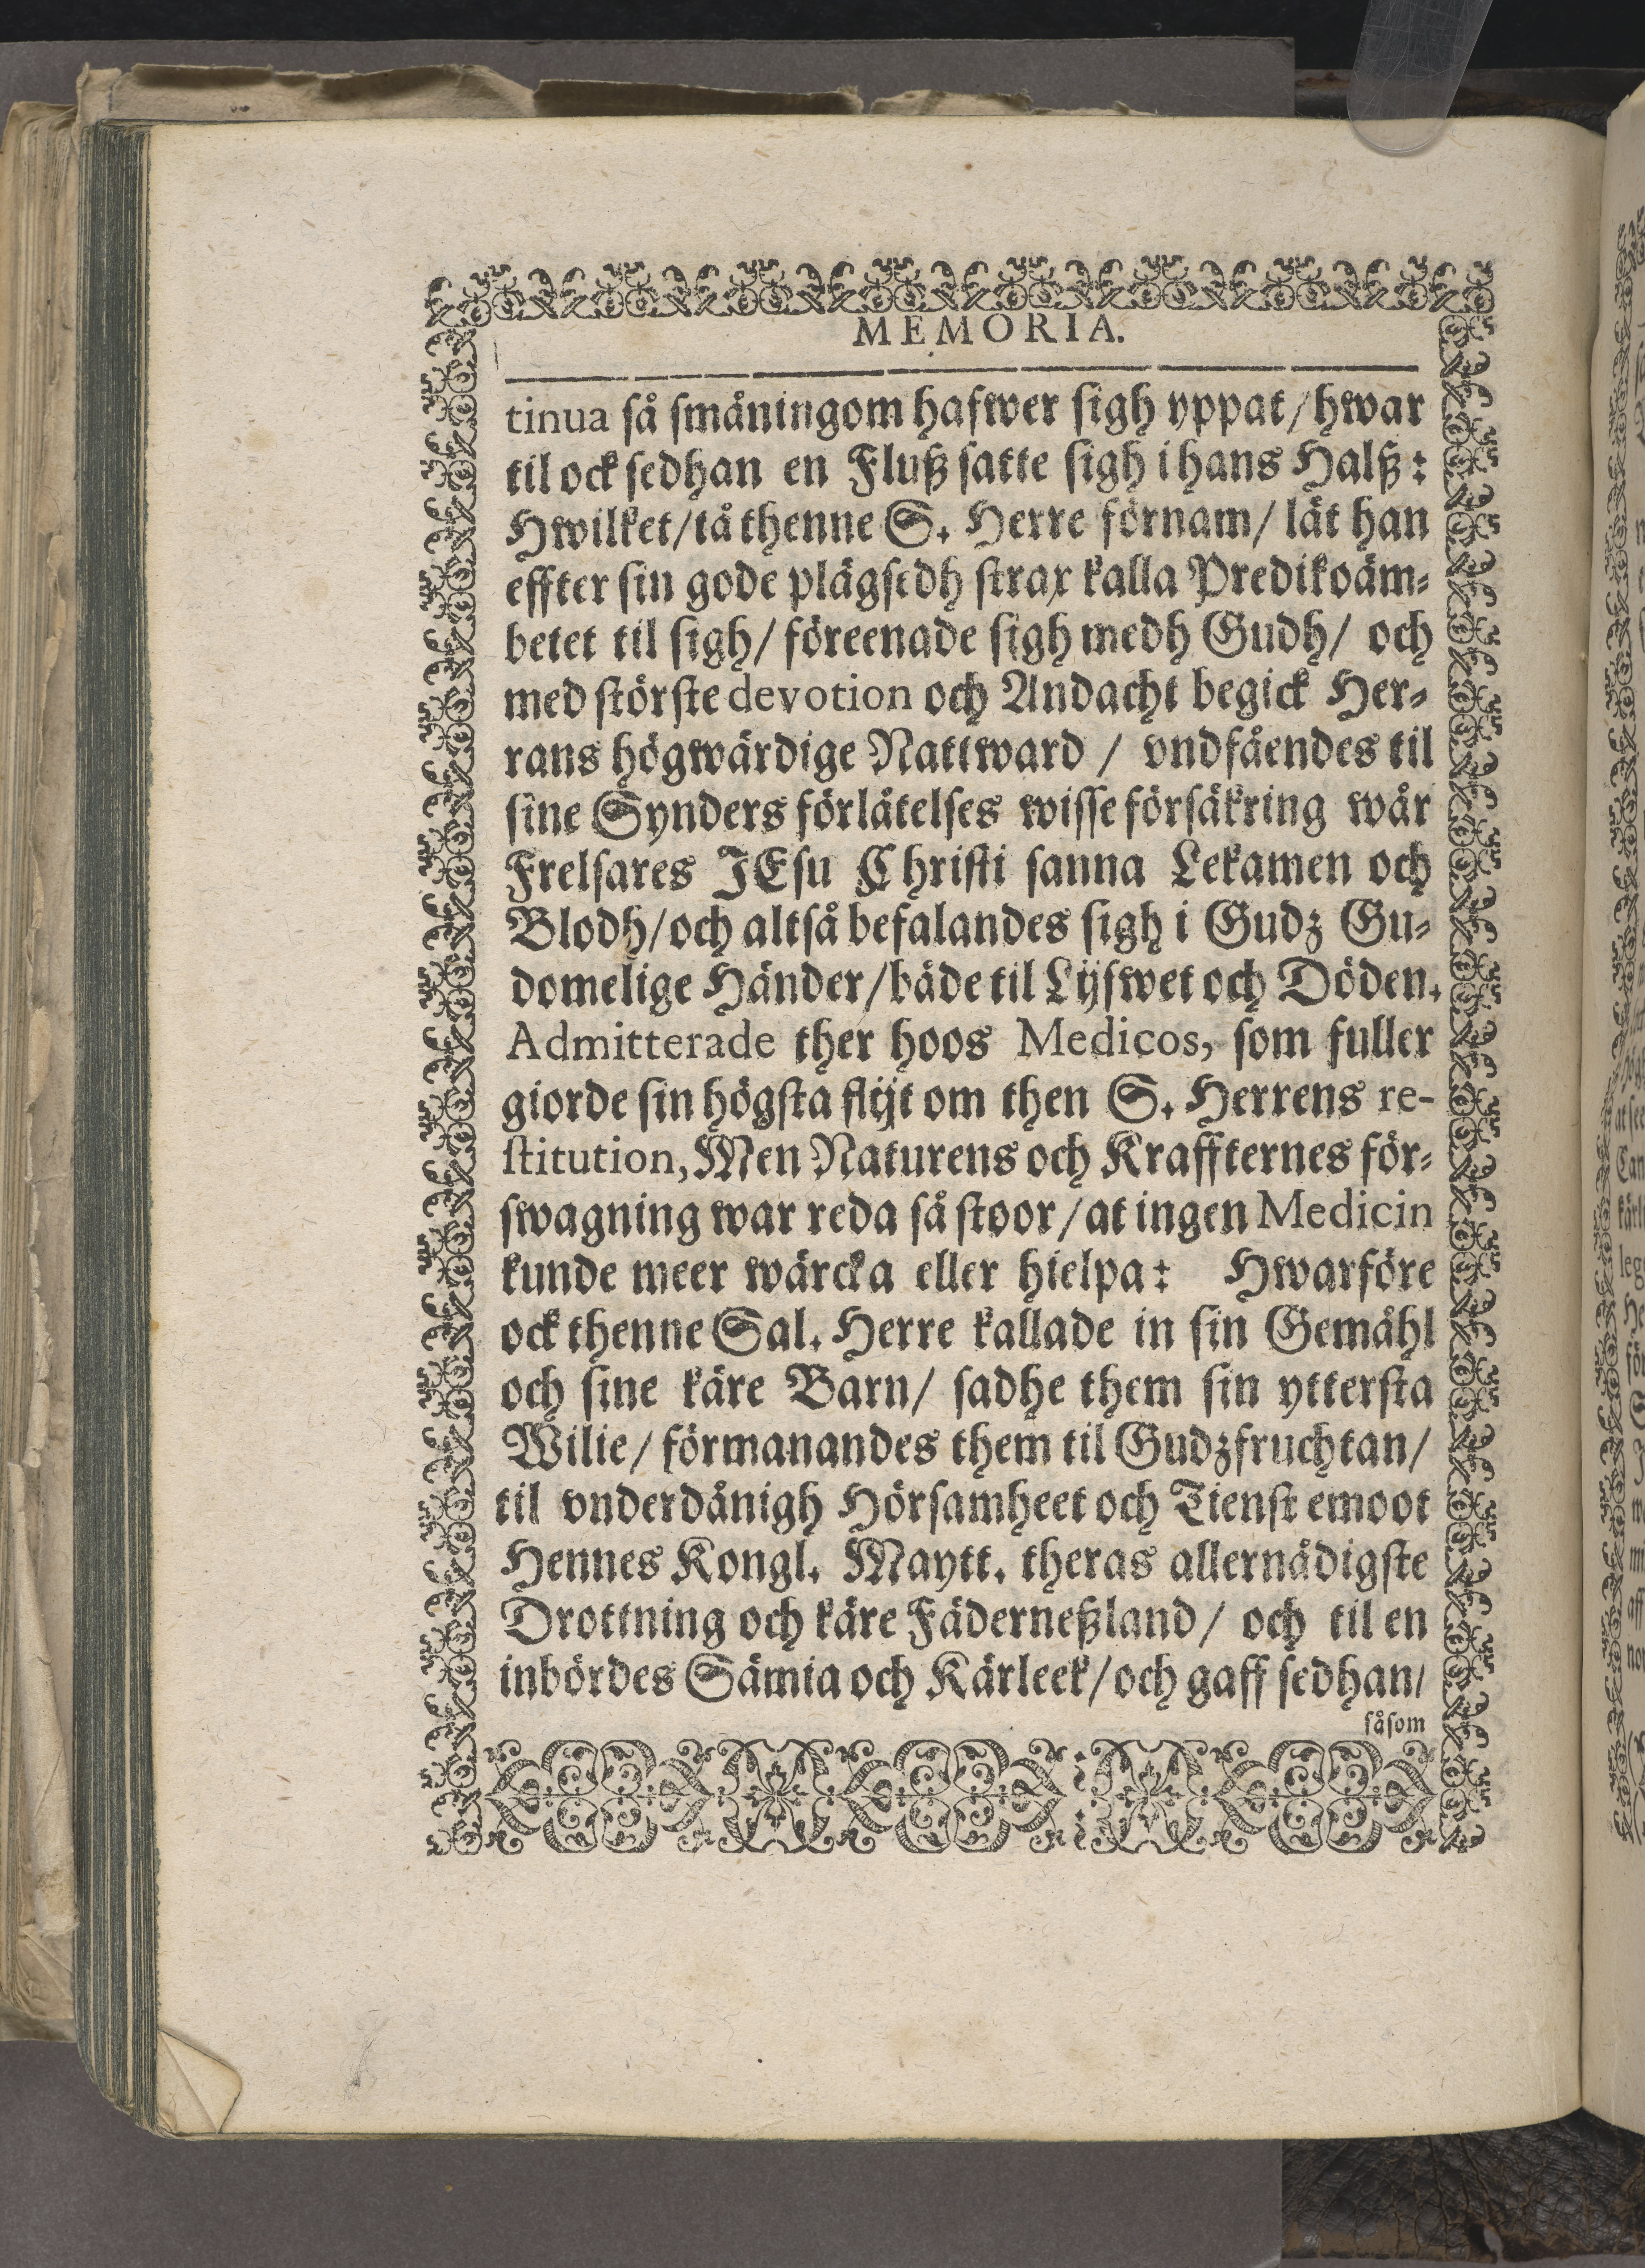 MEMORIA.
tinua så småningom hafwer sigh yppat/hwar
til ock sedhan en Fluß satte sigh i hans Halß:
Hwilket/tå thenne S. Herre förnam/ lät han
effter sin gode plägsedh strax kalla Predikoäm-
betet til sigh/ föreenade sigh medh Gudh/ och
med störste devotion och Andacht begick Her-
rans högwärdige Nattward / vndfåendes til
sine Synders förlåtelses wisse försäkring wår
Frelsares JEsu Christi sanna Lekamen och
Blodh/och altså befalandes sigh i Gudz Gu-
domelige Händer/både til Lijfwet och Döden.
Admitterade ther hoos Medicos, som fuller
giorde sin högsta flijt om then S. Herrens re-
stitution, Men Naturens och Kraffternes för-
swagning war reda så stoor/at ingen Medicin
kunde meer wärcka eller hielpa: Hwarföre
ock thenne Sal. Herre kallade in sin Gemåhl
och sine käre Barn/ sadhe them sin yttersta
Wilie/ förmanandes them til Gudzfruchtan/
til vnderdånigh Hörsamheet och Tienst emoot
Hennes Kongl. Maytt. theras allernådigste
Drottning och käre Fäderneßland/ och til en
inbördes Sämia och Kärleek/och gaff sedhan/
såsom